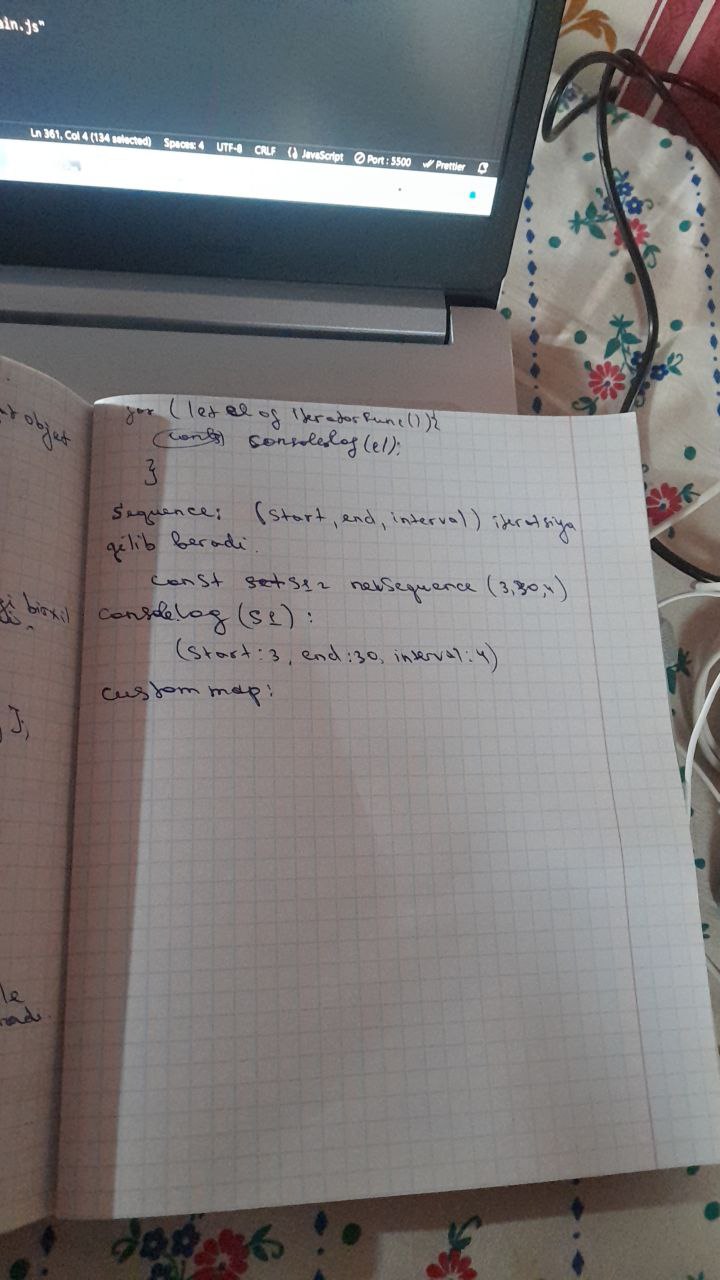 ain.js"
Ln 361, Col 4 (134 selected) Spaces: 4 UTF-8 CRLF JavaScript Port : 5500 Prettier
objet
for (let el of iteratorFunc()){
console.log(el);
}
Sequence: (start, end, interval) iteratsiya
qilib beradi.
const s1 = newSequence (3,30,4)
console.log (s1) :
(start:3, end:30, interval:4)
custom map:
birxil
],